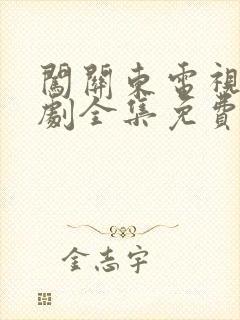 闖關東電視
劇全集免費
金志宇